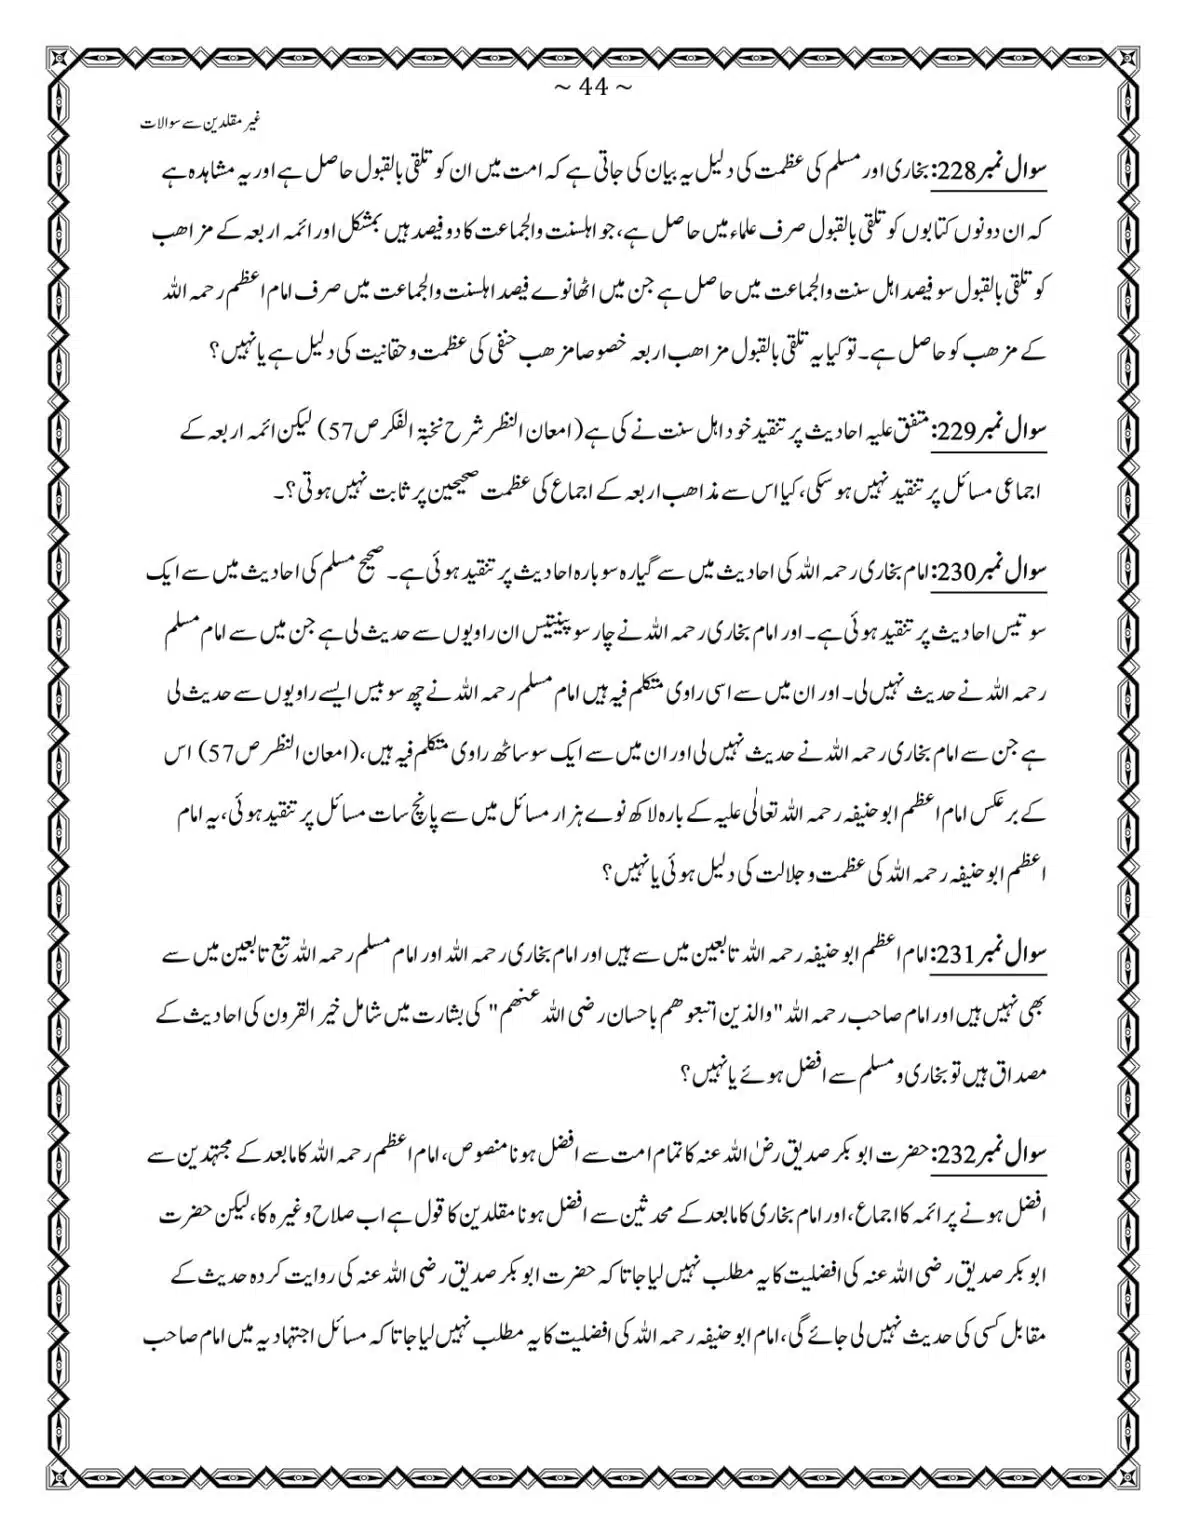 ~ 44 ~
غیر مقلدین سے سوالات
سوال نمبر228: بخاری اور مسلم کی عظمت کی دلیل یہ بیان کی جاتی ہے کہ امت میں ان کو تلقی بالقبول حاصل ہے اور یہ مشاہدہ ہے
کہ ان دونوں کتابوں کو تلقی بالقبول صرف علماء میں حاصل ہے، جو اہلسنت والجماعت کا دو فیصد ہیں بمشکل اور ائمہ اربعہ کے مزاھب
کو تلقی بالقبول سو فیصد اہل سنت والجماعت میں حاصل ہے جن میں اٹھانوے فیصد اہلسنت والجماعت میں صرف امام اعظم رحمہ اللہ
کے مزھب کو حاصل ہے۔ تو کیا یہ تلقی بالقبول مزاھب اربعہ خصوصا مزھب حنفی کی عظمت و حقانیت کی دلیل ہے یا نہیں؟
سوال نمبر229: متفق علیہ احادیث پر تنقید خود اہل سنت نے کی ہے (امعان النظر شرح نخبۃ الفکر ص57) لیکن ائمہ اربعہ کے
اجماعی مسائل پر تنقید نہیں ہو سکی، کیا اس سے مذاھب اربعہ کے اجماع کی عظمت صحیحین پر ثابت نہیں ہوتی؟۔
سوال نمبر230: امام بخاری رحمہ اللہ کی احادیث میں سے گیارہ سو بارہ احادیث پر تنقید ہوئی ہے۔ صحیح مسلم کی احادیث میں سے ایک
سو تیس احادیث پر تنقید ہوئی ہے۔ اور امام بخاری رحمہ اللہ نے چار سو پینتیس ان راویوں سے حدیث لی ہے جن میں سے امام مسلم
رحمہ اللہ نے حدیث نہیں لی۔ اور ان میں سے اسی راوی متکلم فیہ ہیں امام مسلم رحمہ اللہ نے چھ سو بیس ایسے راویوں سے حدیث لی
ہے جن سے امام بخاری رحمہ اللہ نے حدیث نہیں لی اور ان میں سے ایک سو ساٹھ راوی متکلم فیہ ہیں، (امعان النظر ص57) اس
کے برعکس امام اعظم ابو حنیفہ رحمہ اللہ تعالٰی علیہ کے بارہ لاکھ نوے ہزار مسائل میں سے پانچ سات مسائل پر تنقید ہوئی، یہ امام
اعظم ابو حنیفہ رحمہ اللہ کی عظمت و جلالت کی دلیل ہوئی یا نہیں؟
سوال نمبر231: امام اعظم ابو حنیفہ رحمہ اللہ تابعین میں سے ہیں اور امام بخاری رحمہ اللہ اور امام مسلم رحمہ اللہ تبع تابعین میں سے
بھی نہیں ہیں اور امام صاحب رحمہ اللہ "والذین اتبعوھم باحسان رضی اللہ عنھم" کی بشارت میں شامل خیر القرون کی احادیث کے
مصداق ہیں تو بخاری و مسلم سے افضل ہوئے یا نہیں؟
سوال نمبر232: حضرت ابو بکر صدیق رضٰ اللہ عنہ کا تمام امت سے افضل ہونا منصوص، امام اعظم رحمہ اللہ کا مابعد کے مجتہدین سے
افضل ہونے پر ائمہ کا اجماع، اور امام بخاری کا مابعد کے محدثین سے افضل ہونا مقلدین کا قول ہے اب صلاح وغیرہ کا، لیکن حضرت
ابو بکر صدیق رضی اللہ عنہ کی افضلیت کا یہ مطلب نہیں لیا جاتا کہ حضرت ابو بکر صدیق رضی اللہ عنہ کی روایت کردہ حدیث کے
مقابل کسی کی حدیث نہیں لی جائے گی، امام ابو حنیفہ رحمہ اللہ کی افضلیت کا یہ مطلب نہیں لیا جاتا کہ مسائل اجتہادیہ میں امام صاحب